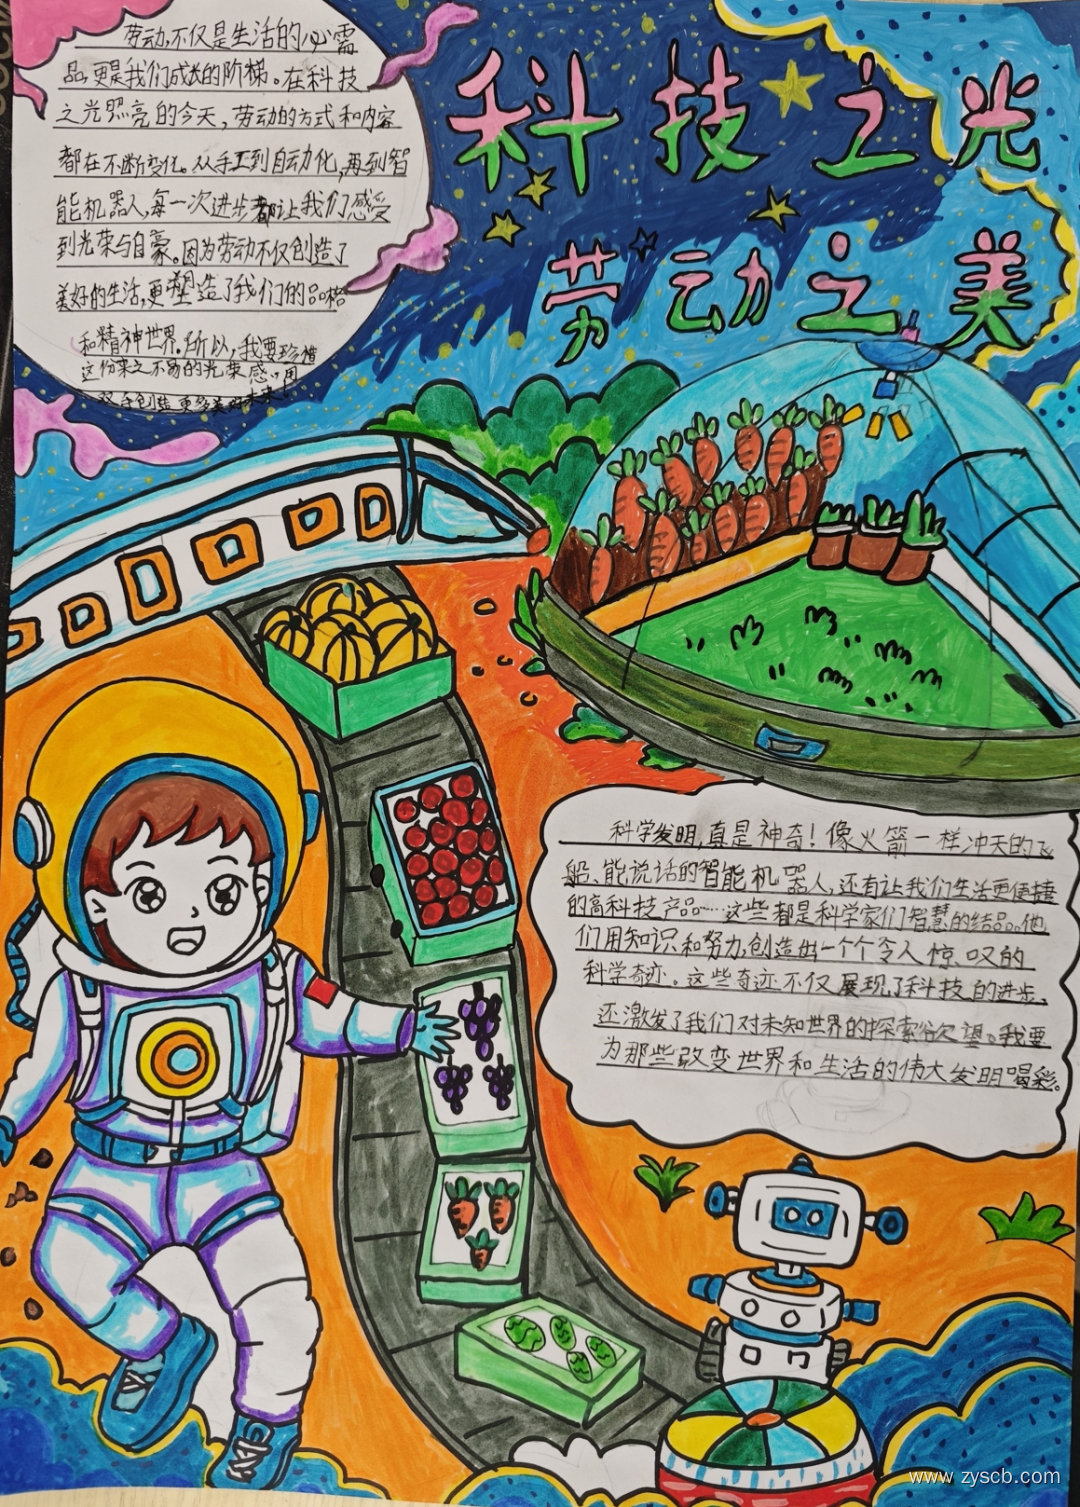 科技之光
劳动之美
劳动,不仅是生活的必需
品,更是我们成长的阶梯。在科技
之光照亮的今天,劳动的方式和内容
都在不断变化。从手工到自动化,再到智
能机器人,每一次进步都让我们感受
到光荣与自豪。因为劳动不仅创造了
美好的生活,更塑造了我们的品格
和精神世界。所以,我要珍惜
这份来之不易的光荣感,用
双手创造更多美好未来!
科学发明,真是神奇!像火箭一样冲天的飞
船、能说话的智能机器人,还有让我们生活更便捷
的高科技产品……这些都是科学家们智慧的结晶。他
们用知识和努力,创造出一个个令人惊叹的
科学奇迹。这些奇迹不仅展现了科技的进步,
还激发了我们对未知世界的探索欲望。我要
为那些改变世界和生活的伟大发明喝彩。
www.zyscb.com